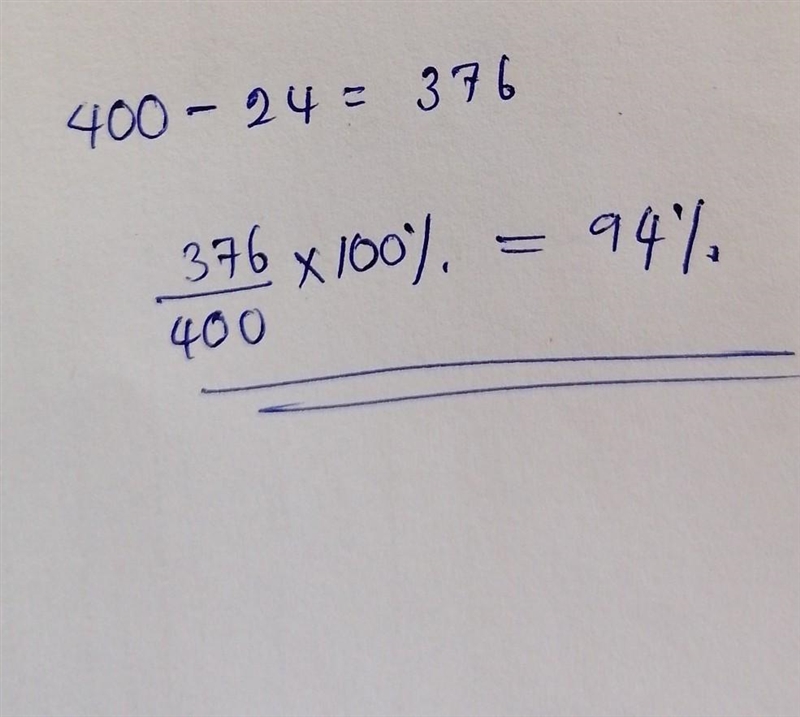 400 - 24 = 376
376/400 × 100% = 94%